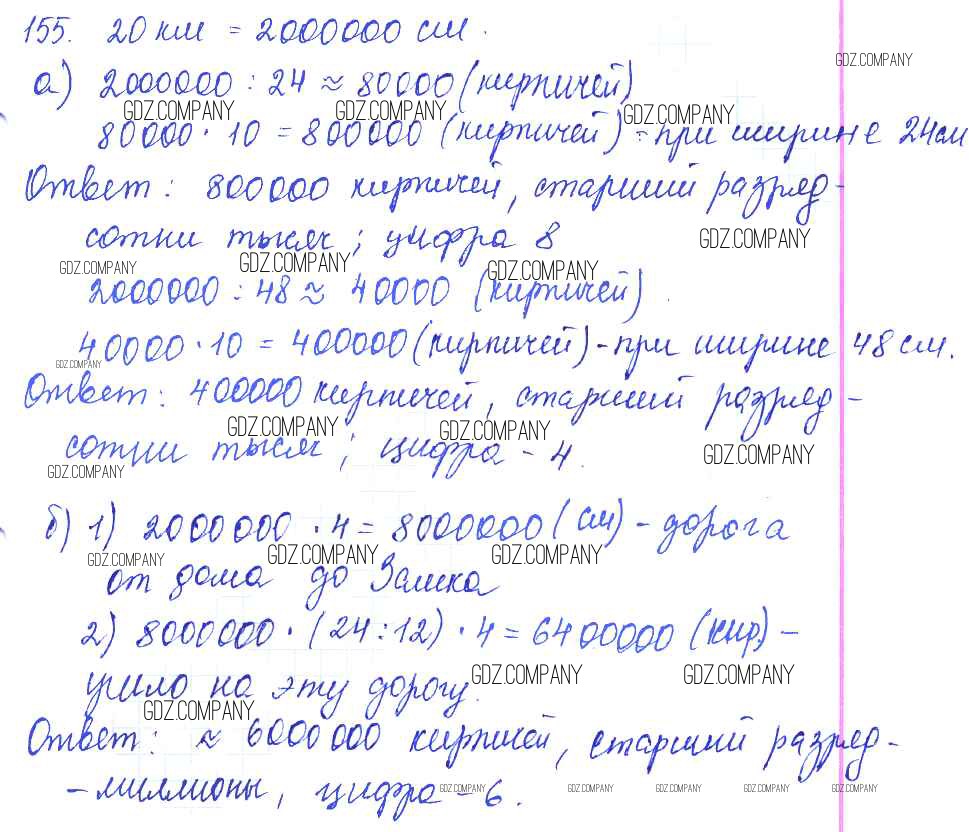 155. 20 км = 2000000 см.
GDZ.COMPANY
а) 2000000 : 24 ≈ 80000 (кирпичей)
GDZ.COMPANY GDZ.COMPANY GDZ.COMPANY
80000 · 10 = 800000 (кирпичей) - при ширине 24см
Ответ: 800000 кирпичей, старший разряд-
сотни тысяч; цифра 8
GDZ.COMPANY
GDZ.COMPANY GDZ.COMPANY GDZ.COMPANY
2000000 : 48 ≈ 40000 (кирпичей)
40000 · 10 = 400000 (кирпичей) - при ширине 48 см.
GDZ.COMPANY
Ответ: 400000 кирпичей, старший разряд -
GDZ.COMPANY GDZ.COMPANY
сотни тысяч; цифра - 4.
GDZ.COMPANY GDZ.COMPANY
б) 1) 2000000 · 4 = 8000000 (см) - дорога
GDZ.COMPANY GDZ.COMPANY GDZ.COMPANY
от дома до Замка
2) 8000000 · (24 : 12) · 4 = 6400000 (кир.) -
ушло на эту дорогу.
GDZ.COMPANY GDZ.COMPANY
GDZ.COMPANY
Ответ: ≈ 6000000 кирпичей, старший разряд-
- миллионы, цифра - 6.
GDZ.COMPANY GDZ.COMPANY GDZ.COMPANY GDZ.COMPANY GDZ.COMPANY